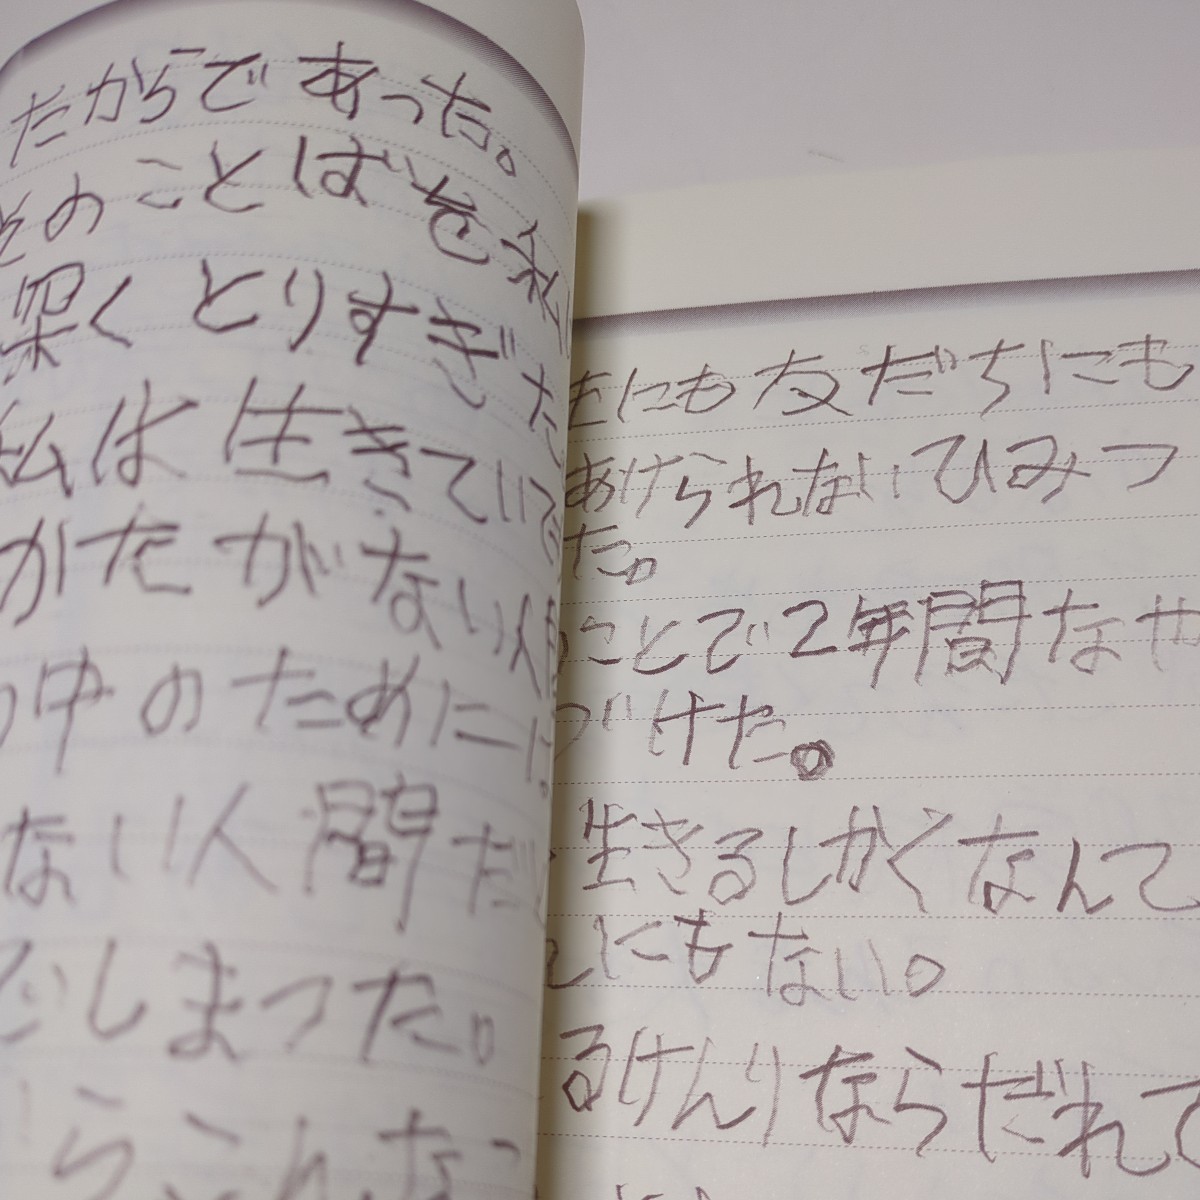 だからであった。
そのことばを私
深くとりすぎた
私は生きていて
かたがない人間
の中のために
ない人間だ
でしまった。
らこんな
生にも友だちにも
あげられないひみつ
た。
ことで2年間なや
づけた。
生きるしかくなんて、
にもない。
るけんりならだれて